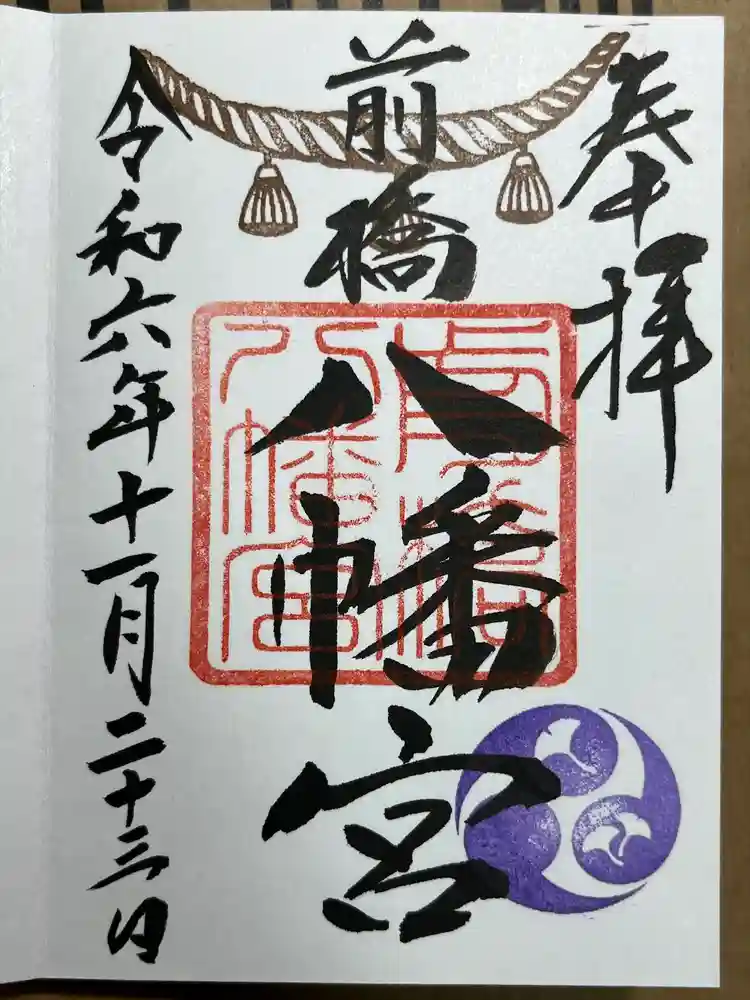 奉拝
前橋
八幡宮
前橋
八幡宮
令和六年十一月二十三日